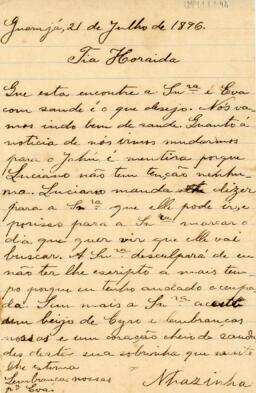 Guarujá, 21 de Julho de 1896.
Tia Horaida
Que esta encontre a Snra e Eva
com saude é o que desejo. Nós va-
mos indo bem de saude. Quanto á
noticia de nós irmos mudarmos
para o Jahú é mentira porque
Luciano não tem tenção nenhu-
ma. Luciano manda dizer
para a Snra que elle pode ir e
porisso para a Snra marcar o
dia que quer vir que elle vai
buscar. A Snra desculpará de eu
não ter lhe escripto a mais tem-
po porque eu tenho andado ocupa-
da. Sem mais a Snra aceite
um beijo de Cyro lembranças
nossas e um coração cheio de sauda-
des desta sua sobrinha que
lhe estima
Lembranças nossas
pa Eva.